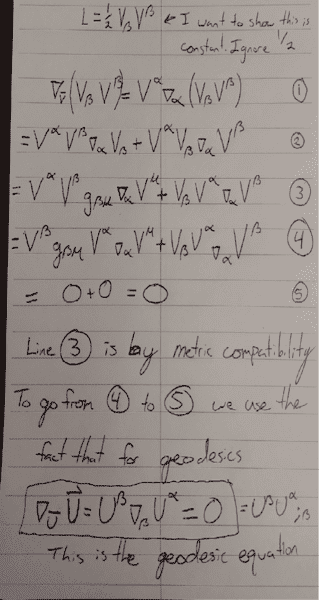 L = ½ V_β V^β ← I want to show this is
constant. Ignore 1/2
∇_V⃗ (V_β V^β) = V^α ∇_α (V_β V^β) ①
= V^α V^β ∇_α V_β + V^α V_β ∇_α V^β ②
= V^α V^β g_βμ ∇_α V^μ + V_β V^α ∇_α V^β ③
= V^β g_βμ V^α ∇_α V^μ + V_β V^α ∇_α V^β ④
= 0 + 0 = 0 ⑤
Line ③ is by metric compatibility
To go from ④ to ⑤ we use the
fact that for geodesics
∇_U⃗ U⃗ = U^β ∇_β U^α = 0 = U^β U^α_;β
This is the geodesic equation